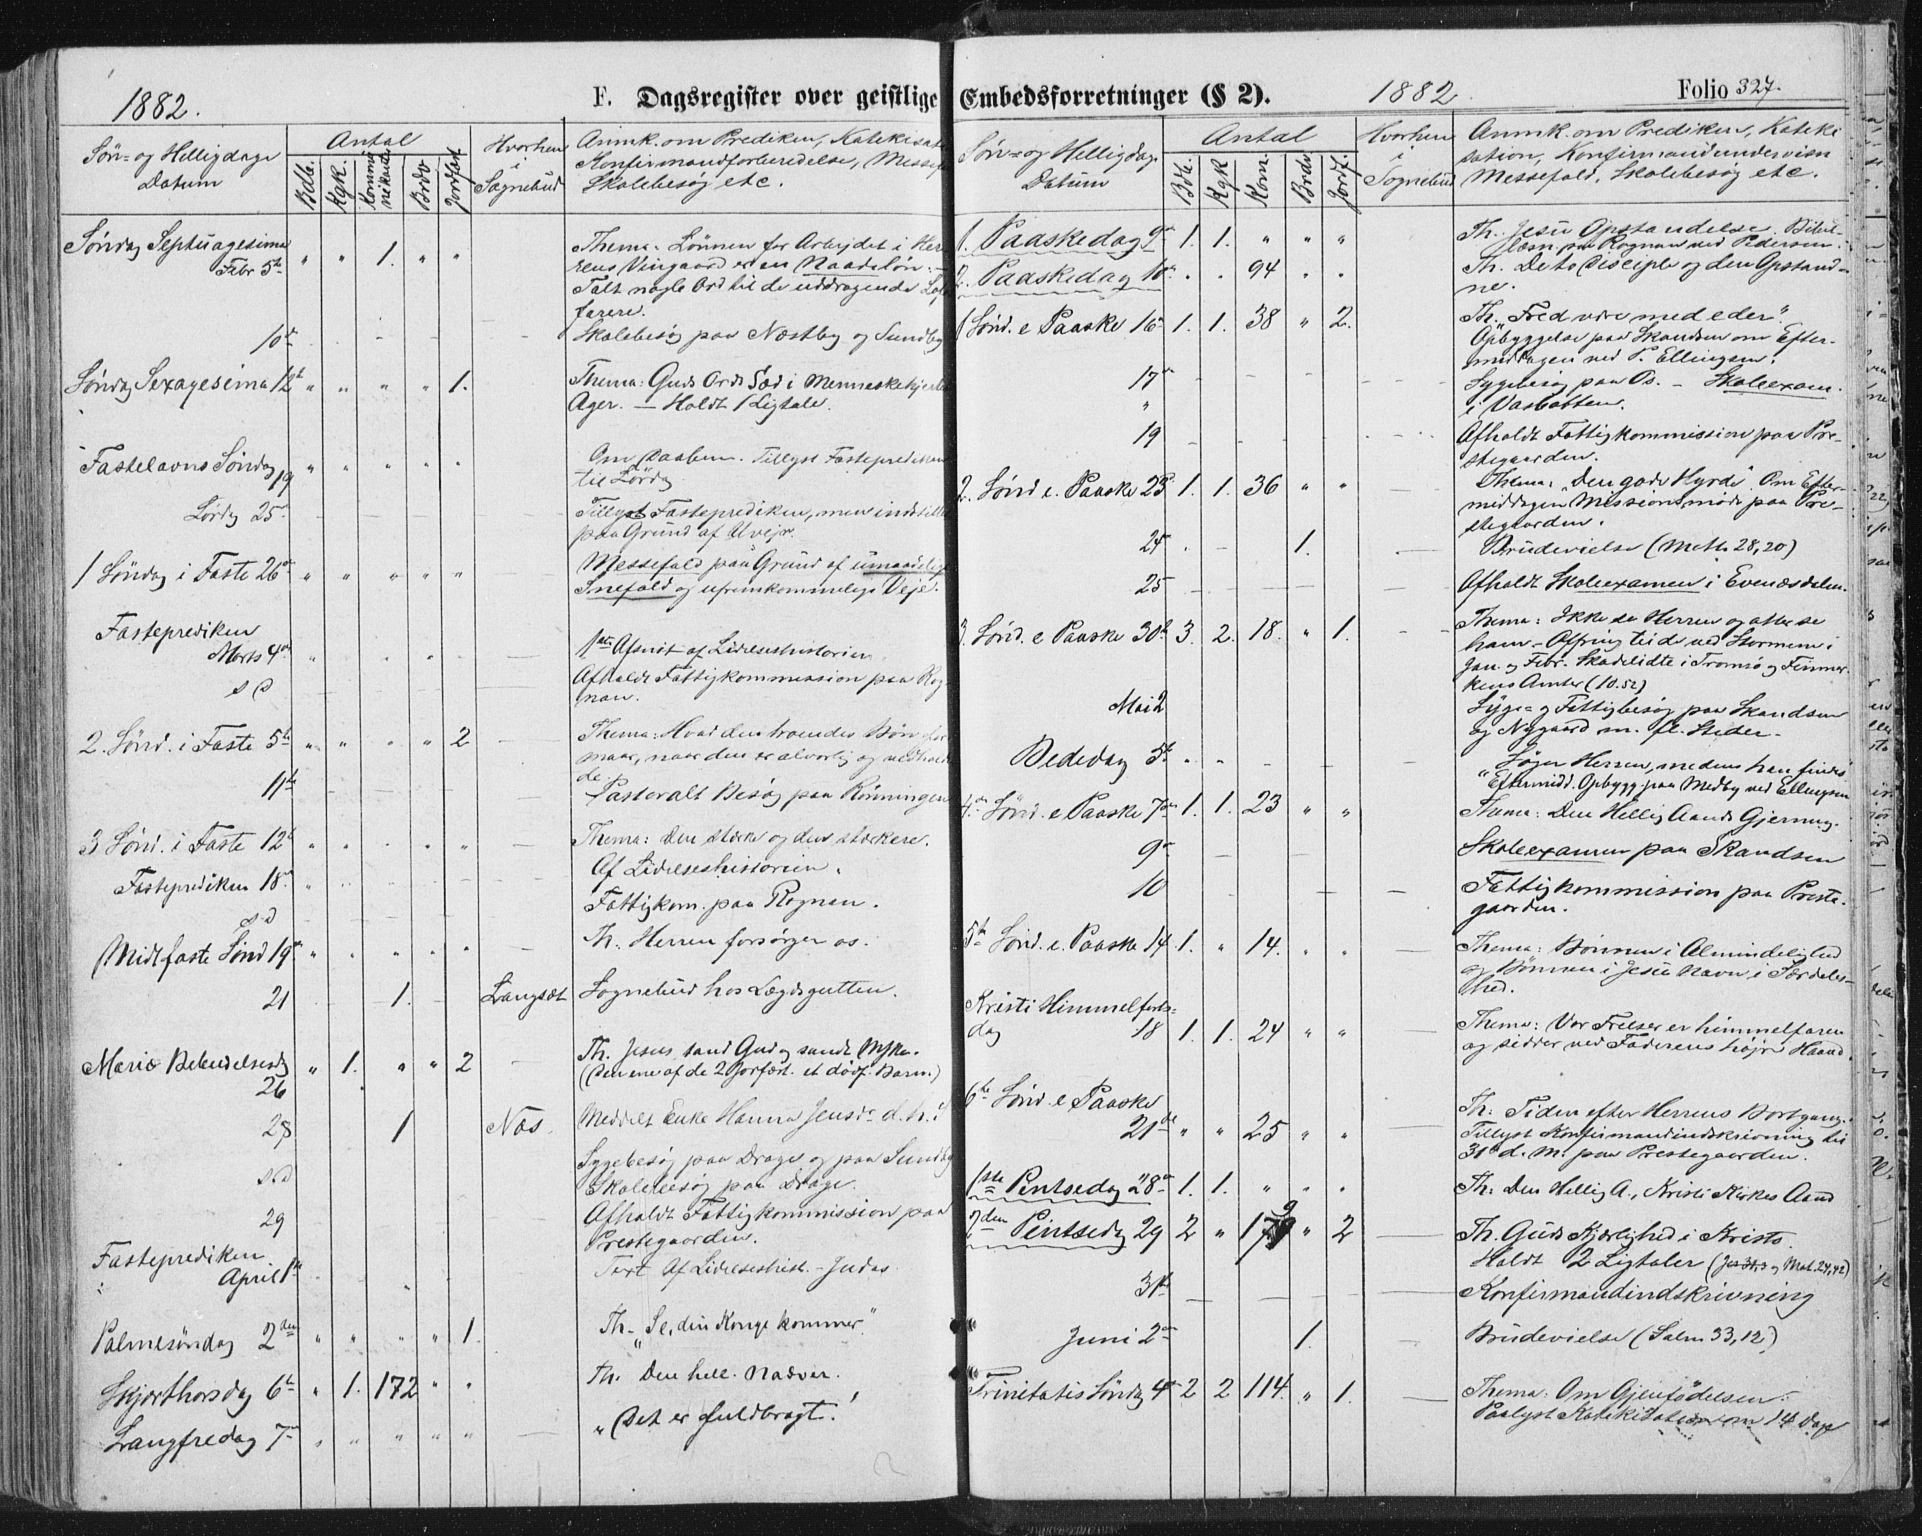 1882.
F. Dagsregister over geistlige Embedsforretninger (§ 2).
1882
Folio 327.
Søn- og Helligdage Datum
Antal
Bdb. Kgk. Kommunikanter Brdv Jordfæst.
Hvorhen i Sognebud
Anmk. om Prediken, Katekisat
Konfirmandforberedelse, Messef
Skolebesøg etc.
Søndag Septuagesima
Febr 5te " " 1. " "
Thema: Lønnen for Arbejdet i Her
rens Vingaard er en Naadeløn. —
Talt nogle Ord til de uddragende Lof
farere.
10de Skolebesøg paa Næstby og Sundby
Søndag Sexagesima 12te " " " " 1.
Thema: Guds Ords Sæd i Menneskehjerte
Ager. — Holdt 1 Ligtale.
Fastelavns Søndag 19 " " " " "
Om Daaben. Tillyst Fasteprediken
til Lørdag
Lørdag 25de Tillyst Fasteprediken, men indstillet
paa Grund af Uvejr.
1 Søndag i Faste 26de " " " " "
Messefald paa Grund af umaadeligt
Snefald og ufremkommelige Veje.
Fasteprediken
Marts 4de 1ste Afsnit af Lidelseshistorien.
s d Afholdt Fattigkommission paa Rog
nan.
2. Sønd. i Faste 5te " " " " 2
Thema: Hvad den troendes Bøn for
maar, naar den er alvorlig og vedholden
de.
11te Pastoralt Besøg paa Rønningen
3 Sønd. i Faste 12te " " " " "
Thema: Den stærke og den stærkere.
Fasteprediken 18de Af Lidelseshistorien.
s d Fattigkom. paa Rognan.
Midtfaste Sønd 19de " " " " "
Th. Herren forsørger os.
21 1. Langsæt Sognebud hos Lægdsgutten.
Mariæ Bebudelsesdg
26 " 1. " " 2
Th. Jesus sand Gud og sandt Mske.
(Den ene af de 2 Jorfæst. et dødf. Barn.)
28 1 Næs. Meddelt Enke Hanna Jensdr d. h. s
s d Sygebesøg paa Drage og paa Sundby
Skolebesøg paa Drage.
29 Afholdt Fattigkommission paa
Prestegaarden.
Fasteprediken
April 1ste Text Af Lidelseshist. - Judas.
Palmesøndag 2den " " " " 1.
Th. "Se, din Konge kommer".
Skjærthorsdag 6te " 1. 172 " "
Th. Den hell. Nadver.
Langfredag 7de " " " " "
"Det er fuldbragt!
Søn- og Helligdage Datum
Antal
Bdb. Kgk Kom. Brdv Jordf.
Hvorhen i Sognebud
Anmk. om Prediken, Kateki
sation, Konfirmandundervisn
Messefald, Skolebesøg etc.
1. Paaskedag 9de 1. 1. " " "
Th. Jesu Opstandelse. Bibel
læsn. paa Rognan ved Pedersen.
2. Paaskedag 10de " " 94 " "
Th. De to Disciple og den Opstand-
ne.
1 Sønd. e Paaske 16de 1. 1. 38 " 2.
Th. "Fred være med eder".
Opbyggelse paa Skandsen om Efter-
middagen ved P. Ellingsen.
17de Sygebesøg paa Os. — Skoleexam.
" i Vasbotten.
19 Afholdt Fattigkommission paa Pre-
stegaarden.
2. Sønd. e. Paaske 23de 1. 1. 36 " "
Thema: "Den gode Hyrde". Om Efter-
middagen Missionsmøde paa Pre-
stegaarden.
24 1. Brudevielse (Matt. 28,20)
25 Afholdt Skoleexamen i Evenæsdalen.
3. Sønd. e Paaske 30te 3. 2. 18. " 1.
Thema: Ikke se Herren og atter se
ham — Ofring til de ved Stormene i
Jan. og Febr. Skadelidte i Tromsø og Finmar
kens Amter (10.52)
Mai 2 Syge- og Fattigbesøg paa Skandsen
og Nygaard m. fl. Steder.
Bededag 5te
Søger Herren, medens han findes
" Eftermidd. Opbygg. paa Medby ved Ellingsen
4de Sønd. e Paaske 7de 1. 1. 23 " "
Thema: Den Hellig Aands Gjerning.
9de Skoleexamen paa Skandsen
10 Fattigkommission paa Preste-
gaarden.
5te Sønd. e. Paaske 14 1. " 14. " "
Thema: Bønnen i Almindelighed
og Bønnen i Jesu Navn i Særdeles-
hed.
Kristi Himmelfarts-
dag 18 1. 1. 24 " "
Thema: Vor Frelser er himmelfaren
og sidder ved Faderens højre Haand.
6te Sønd. e Paaske
21de " " 25 " "
Th: Tiden efter Herrens Bortgang.
Tillyst Konfirmandindskrivning til
31te d. M. paa Prestegaarden.
1ste Pentsedag 28de 1. 1. " " "
Th: Den Hellig A., Kristi Kirkes Aand
2den Pentsedag 29 2 " " 2
Th. Guds Kjærlighed i Kristo.
Holdt 2 Ligtaler
31te Konfirmandindskrivning
Juni 2de 1. Brudevielse (Salm. 33,12)
Trinitatis Søndag 4de 2 2 114. " 1.
Thema: Om Gjenfødelsen.
Paalyst Katekisation om 14 Dage